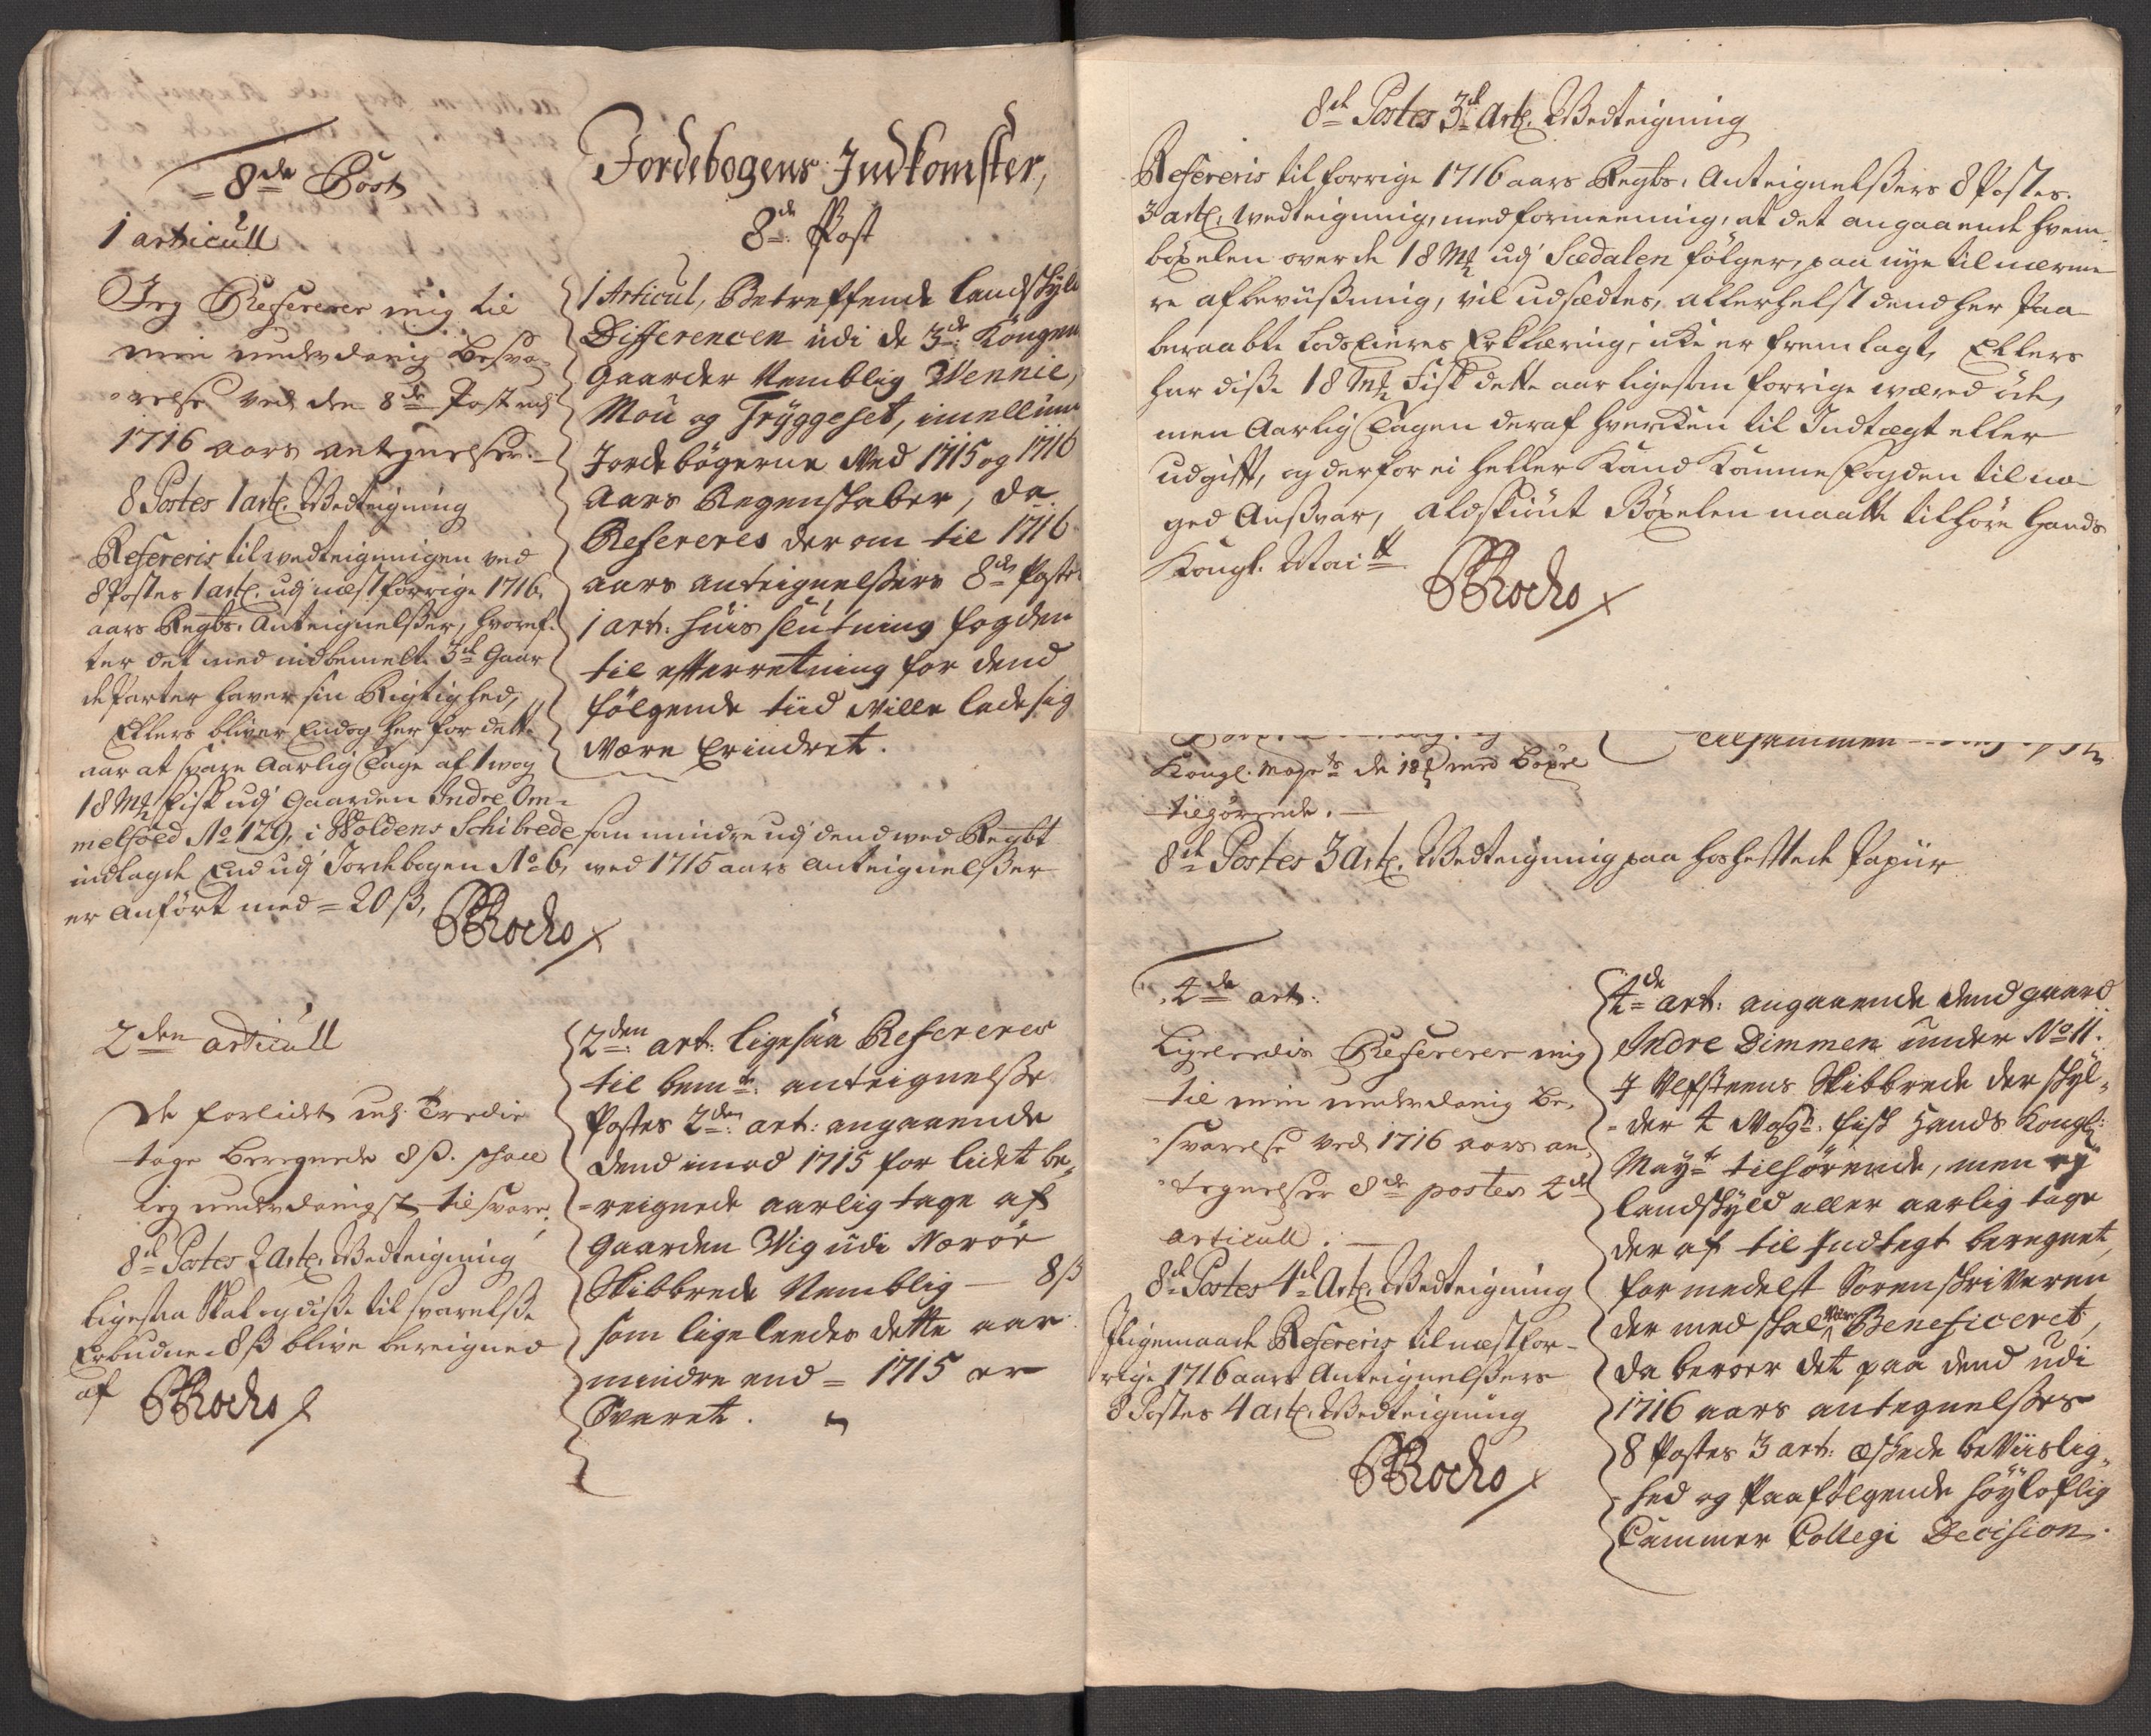 8de Post
1 articull
Jeg Refererer mig til
min underdanig besva-
relse ved den 8de Post udj
1716 aars antegnelser.
8 Postes 1 artl. Wedteigning
Refereris til wedteigningen ved
8 Postes 1 artl. udj næst forrige 1716
aars Regbs. Anteignelsser, hvoref-
ter det med indbemelte 3de Gaar
de Parter haver sin Rigtighed,
Ellers bliver Endog her for dette
aar at svare Aarlig Tage af 1 wog
18 Mk fisk udj Gaarden Indre Om-
melsoed No 129, i Woldens Schibrede, saa mindre udj dend wed Regbt
indlagde End udj Jordebogen No 6, wed 1715 aars Anteignelsser
er Anført med = 20 ß,
PRocho
2den articull
De forlidet udj Tredie
tage beregnede 8 ß. schall
ieg underdanigst tilsvare
8de Postes 2 Artl. Wedteigning
Ligesaa Skal og disse til svarelsse
Erbudne 8 ß blive bereigned
af PRocho
Jordebogens Indkomster,
8de Post
1 Articul, Betreffende Landskyld
Differencen udi de 3de Kongens
Gaarder Nemblig Wennie,
Mou og Tryggeset, imellum
Jordebøgerne Ved 1715 og 1716
Aars Regenskaber, da
Refereres der om til 1716
aars anteignelssers 8de Postes
1 art: huis slutning fogden
til efterretning for dend
følgende tiid Wille lade sig
Være Erindret.
2den art: ligesaa Refererer
til bemte: anteignelsse
Postes 2den art: angaaende
dend imod 1715 for lidet be-
reignede aarlig tage af
Gaarden Wig udi Nærøe
Skibbrede Nemblig — 8 ß
som ligeleedes dette aar
mindre end = 1715 er
Svaret.
8de Postes 3de Artl. Wedteigning
Refereris til forrige 1716 aars Regbs. Anteignelssers 8 Postes
3 artl. wedteigning, med formeening, at det angaaende hvem
böxelen over de 18 Mk udj Sædalen følger, paa nye til nærme
re afbevüssning, vil udsædtes, allerhelst dend her Paa
beraabte Lodseieres Erklæring, icke er fremlagt, Ellers
har disse 18 Mk Fisk dette aar ligesom forrige wæred öde,
men Aarlig Tagen deraf hvercken til Indtægt eller
udgift, og derfor ei heller Kand komme fogden til no-
ged Anssvar, aldskiønt Böxelen maatte tilhöre Hands
Kongl. Maitt.
PRocho
tilsammen
Kongl. Mayts de 18 med böxel
tilhørende.
8de Postes 3 Artl. Wedteigning paa hosheftede Papiir
4de art:
Ligeleedis Refererer mig
til min underdanig be-
svarelse ved 1716 aars an-
tegnelser 8de postes 4de
articull.
8de Postes 4de Artl. Wedteigning
Jligemaade Refereris til næst for-
rige 1716 aars Anteignelssers
8 Postes 4 artl. Wedteigning
PRocho
4de art: angaaende dend gaard
Indre Dimmen under No 11.
J Ulfsteens Skibbrede der skyl-
der 4 Mög: fisk Hands Kongl:
Mayts tilhørende, men ej
landskyld eller aarlig tage
der af til Indtegt beregnet,
formedelst Sorenskriveren
der med skal være Beneficeret,
da beroer det paa dend udi
1716 aars antegnelsses
8 Postes 3 art: æskede beviislig-
hed og Paafølgende høyloflig
Cammer Collegi Decision.